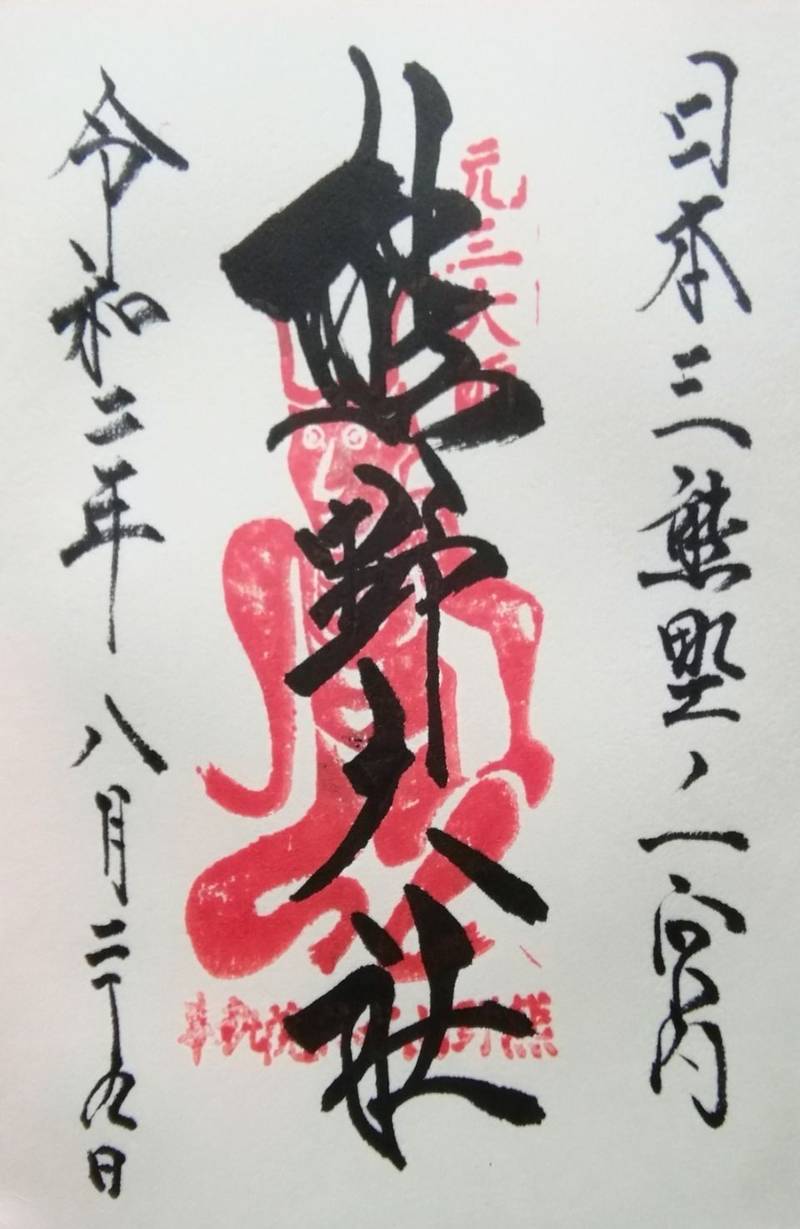 日本三熊野ノ一宮内
元三大師
熊野大社
令和二年八月二十九日